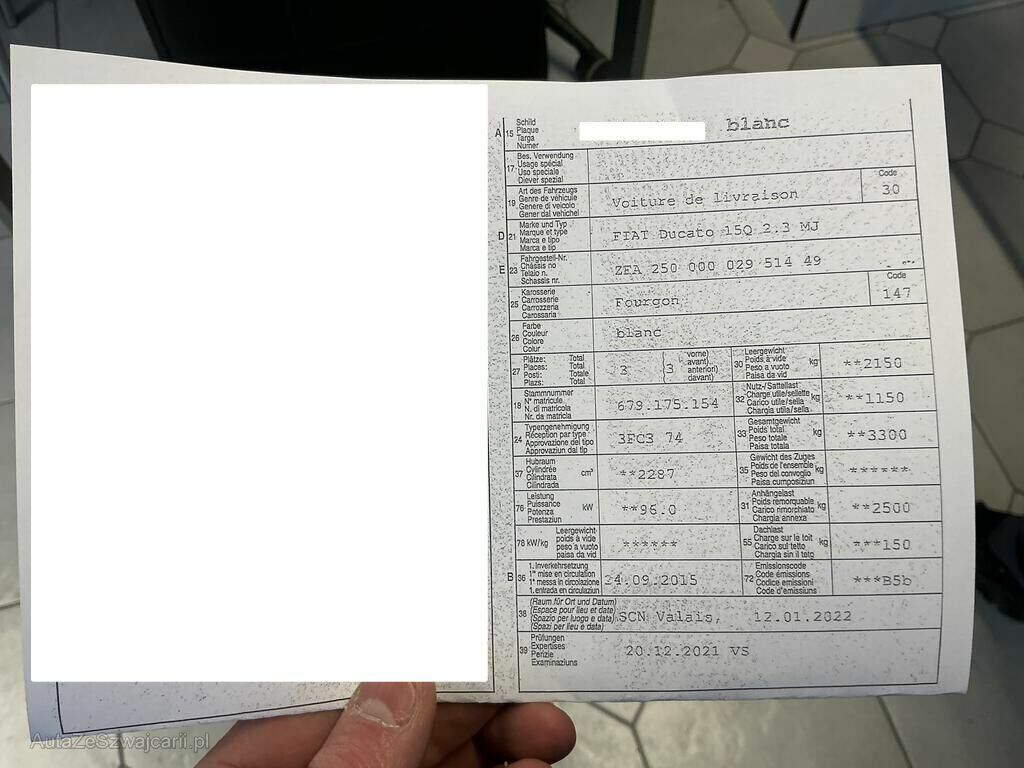 A 15 Schild
Plaque
Targa
Numer
blanc
17 Bes. Verwendung
Usage spécial
Uso speciale
Diever spezial
19 Art des Fahrzeugs
Genre de véhicule
Genere di veicolo
Gener dal vehichel
Voiture de livraison
Code
30
D 21 Marke und Typ
Marque et type
Marca e tipo
Marca e tip
FIAT Ducato 15Q 2.3 MJ
E 23 Fahrgestell-Nr.
Châssis no
Telaio n.
Schassis nr.
ZFA 250 000 029 514 49
25 Karosserie
Carrosserie
Carrozzeria
Carossaria
Fourgon
Code
147
26 Farbe
Couleur
Colore
Colur
blanc
27 Plätze: Total
Places: Total
Posti: Totale
Plazs: Total
3
(3
vorne)
avant)
anteriori)
davant)
30 Leergewicht
Poids à vide
Peso a vuoto
Paisa da vid
kg
**2150
18 Stammnummer
N° matricule
N. di matricola
Nr. da matricla
679.175.154
32 Nutz-/Sattellast
Charge utile/sellette
Carico utile/sella
Chargia utila/sella
kg
**1150
24 Typengenehmigung
Réception par type
Approvazione del tipo
Approvaziun dal tip
3FC3 74
33 Gesamtgewicht
Poids total
Peso totale
Paisa totala
kg
**3300
37 Hubraum
Cylindrée
Cilindrata
Cilindrada
cm³
**2287
35 Gewicht des Zuges
Poids de l'ensemble
Peso del convoglio
Paisa cumposiziun
kg
******
76 Leistung
Puissance
Potenza
Prestaziun
kW
**96.0
31 Anhängelast
Poids remorquable
Carico rimorchiato
Chargia annexa
kg
**2500
78 kW/kg
Leergewicht
poids à vide
peso a vuoto
paisa da vid
******
55 Dachlast
Charge sur le toit
Carico sul tetto
Chargia sin il tetg
kg
***150
B 36 1. Inverkehrsetzung
1re mise en circulation
1a messa in circolazione
1. entrada en circulaziun
24.09.2015
72 Emissionscode
Code émissions
Codice emissioni
Code d'emissiuns
***B5b
38 (Raum für Ort und Datum)
(Espace pour lieu et date)
(Spazio per luogo e data)
(Spazi per lieu e data)
SCN Valais, 12.01.2022
39 Prüfungen
Expertises
Perizie
Examinaziuns
20.12.2021 VS
AutaZeSzwajcarii.pl